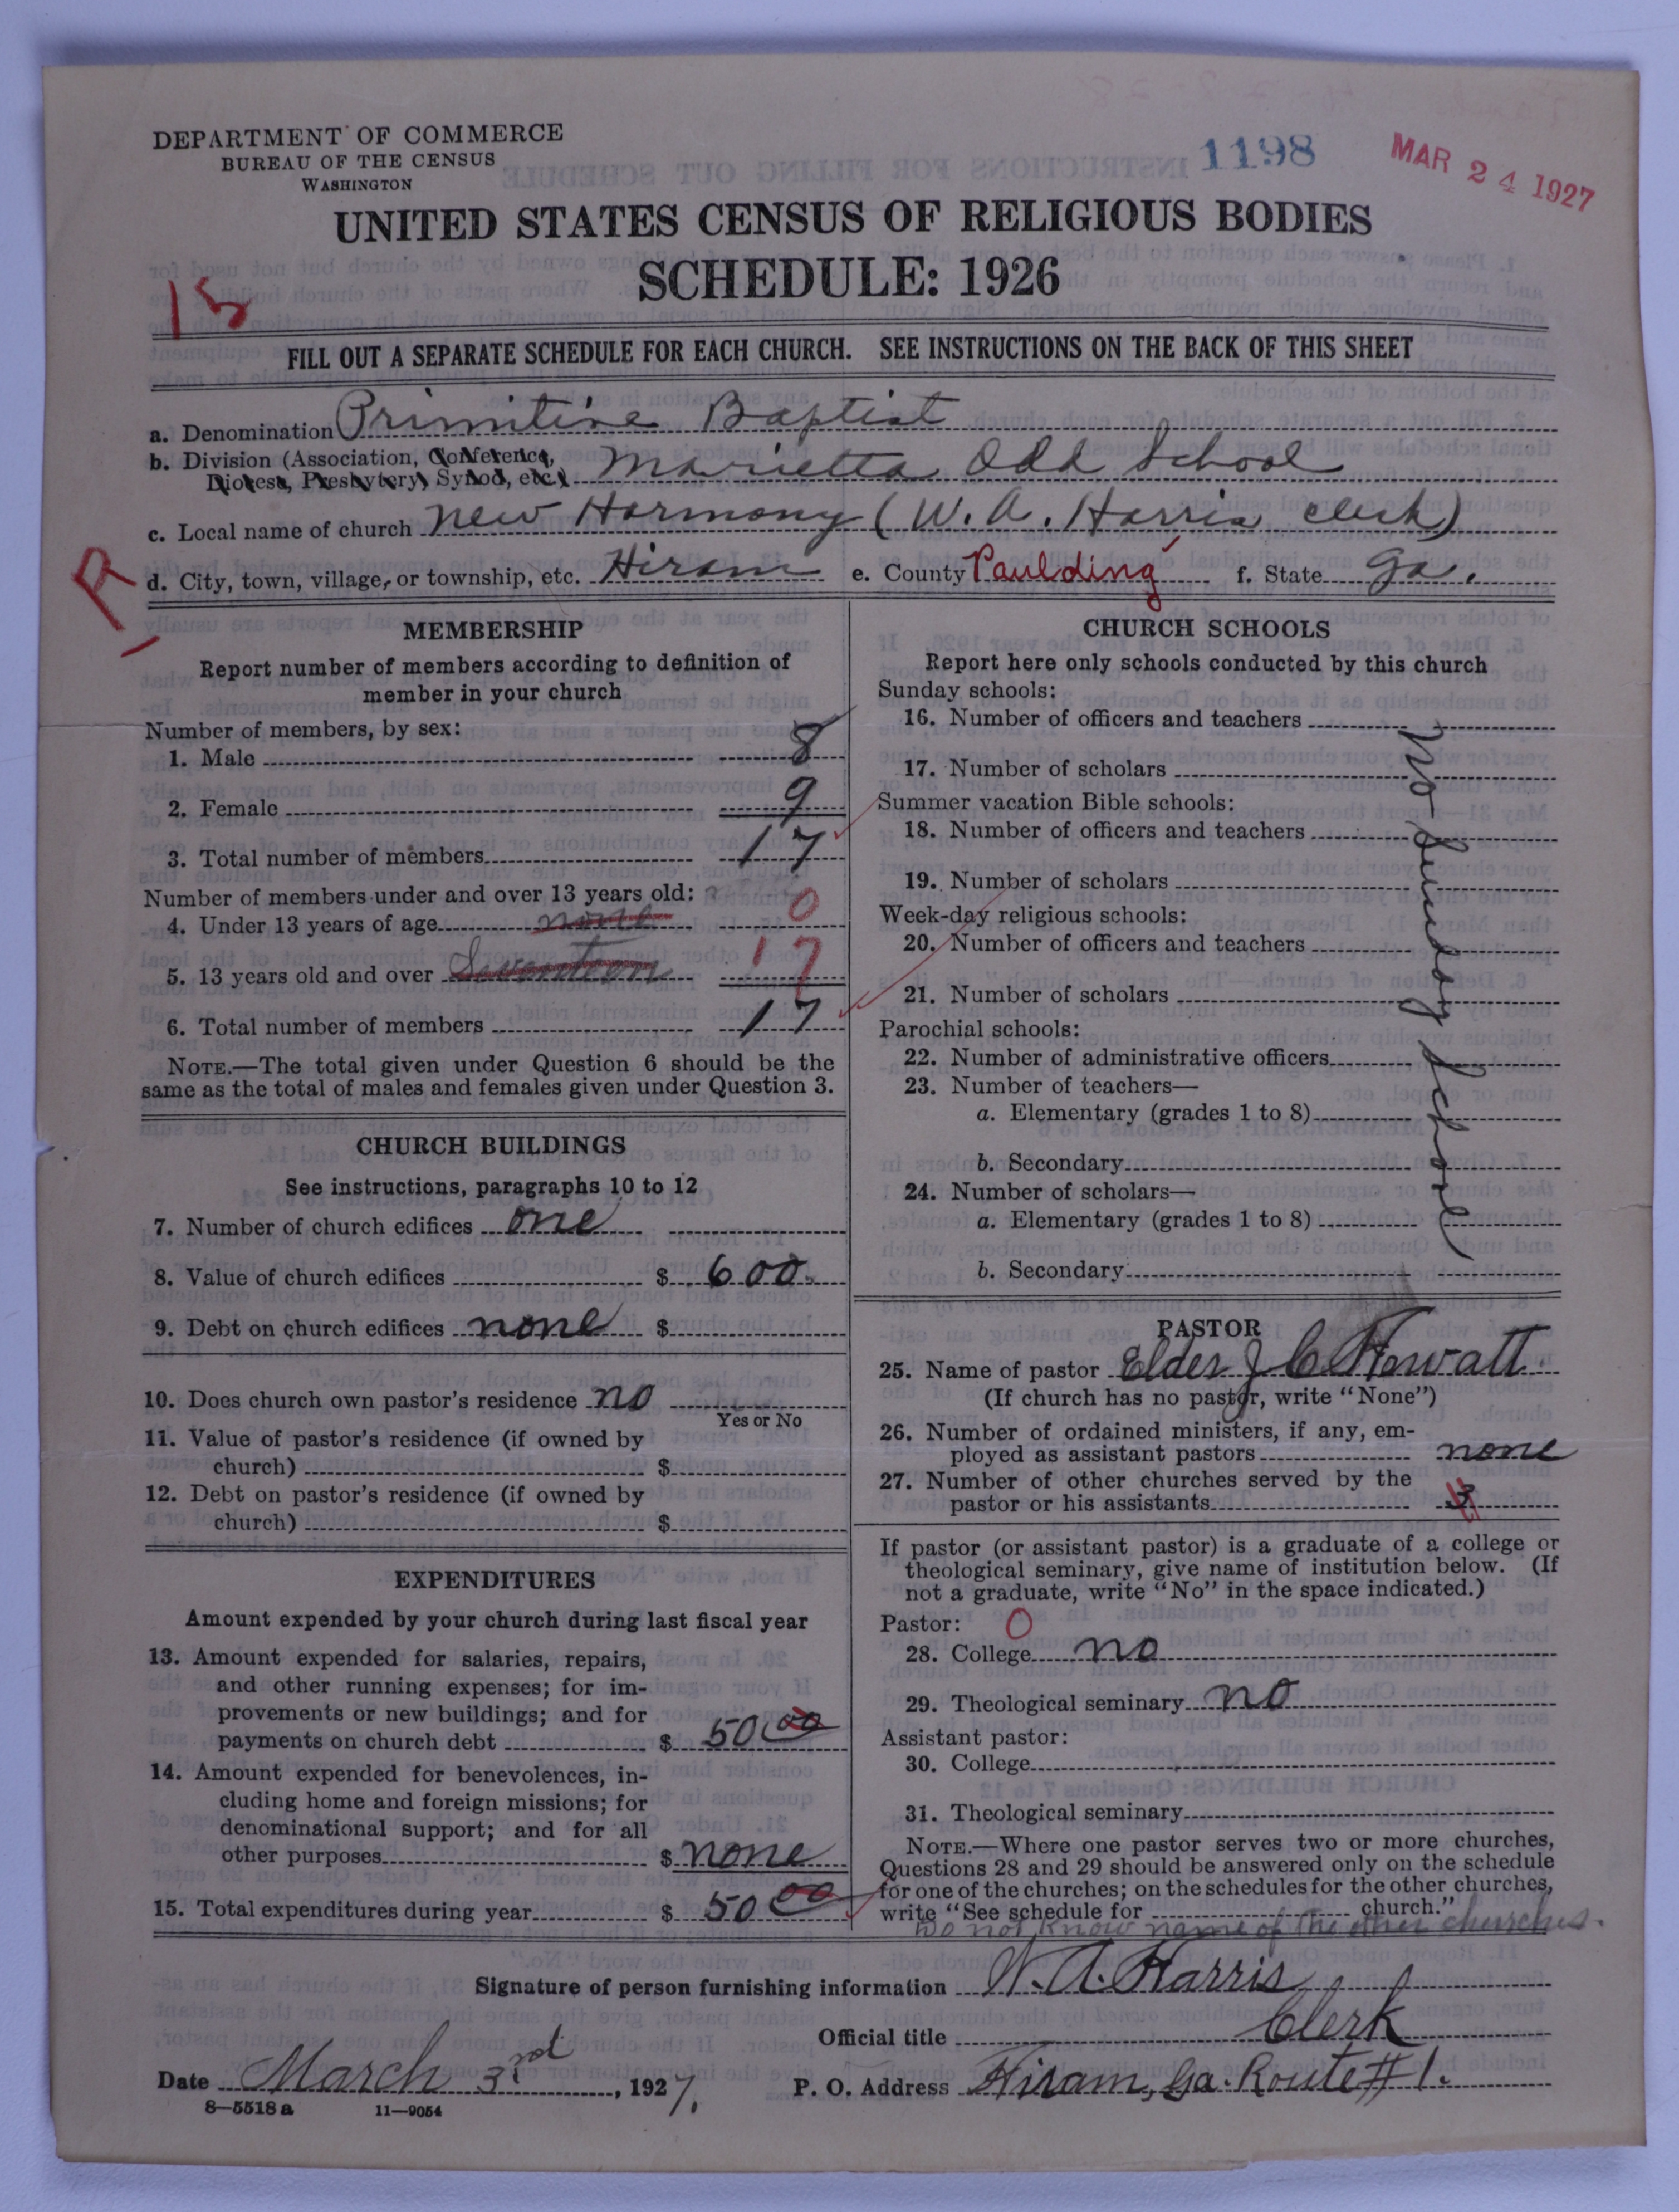 DEPARTMENT OF COMMERCE
BUREAU OF THE CENSUS
WASHINGTON
1198
MAR 24 1927
UNITED STATES CENSUS OF RELIGIOUS BODIES
SCHEDULE: 1926
15
FILL OUT A SEPARATE SCHEDULE FOR EACH CHURCH. SEE INSTRUCTIONS ON THE BACK OF THIS SHEET
a. Denomination Primitive Baptist
b. Division (Association, Conference, Diocese, Presbytery, Synod, etc.) Marietta Odd School
c. Local name of church New Harmony (W. A. Harris clerk)
d. City, town, village, or township, etc. Hiram e. County Paulding f. State Ga.
1R
MEMBERSHIP
Report number of members according to definition of
member in your church
Number of members, by sex:
1. Male 8
2. Female 9
3. Total number of members 17
Number of members under and over 13 years old:
4. Under 13 years of age none 0
5. 13 years old and over Seventeen 17
6. Total number of members 17
NOTE.—The total given under Question 6 should be the
same as the total of males and females given under Question 3.
CHURCH BUILDINGS
See instructions, paragraphs 10 to 12
7. Number of church edifices one
8. Value of church edifices $ 600.
9. Debt on church edifices none $
10. Does church own pastor's residence no
Yes or No
11. Value of pastor's residence (if owned by
church) $
12. Debt on pastor's residence (if owned by
church) $
EXPENDITURES
Amount expended by your church during last fiscal year
13. Amount expended for salaries, repairs,
and other running expenses; for im-
provements or new buildings; and for
payments on church debt $ 50 00
14. Amount expended for benevolences, in-
cluding home and foreign missions; for
denominational support; and for all
other purposes $ none
15. Total expenditures during year $ 50 00
CHURCH SCHOOLS
Report here only schools conducted by this church
Sunday schools:
16. Number of officers and teachers
17. Number of scholars
Summer vacation Bible schools:
18. Number of officers and teachers
19. Number of scholars
Week-day religious schools:
20. Number of officers and teachers
21. Number of scholars
Parochial schools:
22. Number of administrative officers
23. Number of teachers—
a. Elementary (grades 1 to 8)
b. Secondary
24. Number of scholars—
a. Elementary (grades 1 to 8)
b. Secondary
No Sunday School
PASTOR
25. Name of pastor Elder J C Howatt
(If church has no pastor, write "None")
26. Number of ordained ministers, if any, em-
ployed as assistant pastors none
27. Number of other churches served by the
pastor or his assistants 3
If pastor (or assistant pastor) is a graduate of a college or
theological seminary, give name of institution below. (If
not a graduate, write "No" in the space indicated.)
Pastor: 0
28. College no
29. Theological seminary no
Assistant pastor:
30. College
31. Theological seminary
NOTE.—Where one pastor serves two or more churches,
Questions 28 and 29 should be answered only on the schedule
for one of the churches; on the schedules for the other churches,
write "See schedule for church."
Do not know name of the other churches.
Signature of person furnishing information W. A. Harris
Official title Clerk
Date March 3rd, 1927. P. O. Address Hiram, Ga. Route # 1.
8—5518 a 11—9054